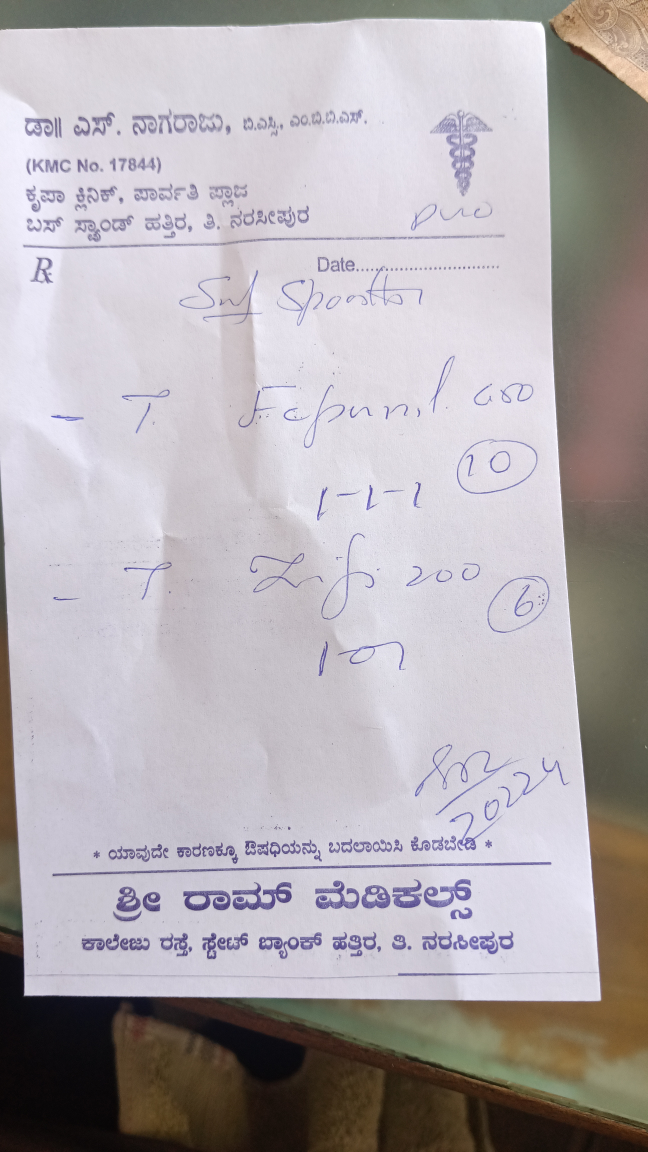 ಡಾ|| ಎಸ್. ನಾಗರಾಜು, ಬಿ.ಎಸ್ಸಿ, ಎಂ.ಬಿ.ಬಿ.ಎಸ್.
(KMC No. 17844)
ಕೃಪಾ ಕ್ಲಿನಿಕ್, ಪಾರ್ವತಿ ಪ್ಲಾಜ
ಬಸ್ ಸ್ಟ್ಯಾಂಡ್ ಹತ್ತಿರ, ತಿ. ನರಸೀಪುರ
℞ Date
- T. 650
10
1-1-1
- T. Zifi 200
6
1-0-1
* ಯಾವುದೇ ಕಾರಣಕ್ಕೂ ಔಷಧಿಯನ್ನು ಬದಲಾಯಿಸಿ ಕೊಡಬೇಡಿ *
ಶ್ರೀ ರಾಮ್ ಮೆಡಿಕಲ್ಸ್
ಕಾಲೇಜು ರಸ್ತೆ, ಸ್ಟೇಟ್ ಬ್ಯಾಂಕ್ ಹತ್ತಿರ, ತಿ. ನರಸೀಪುರ